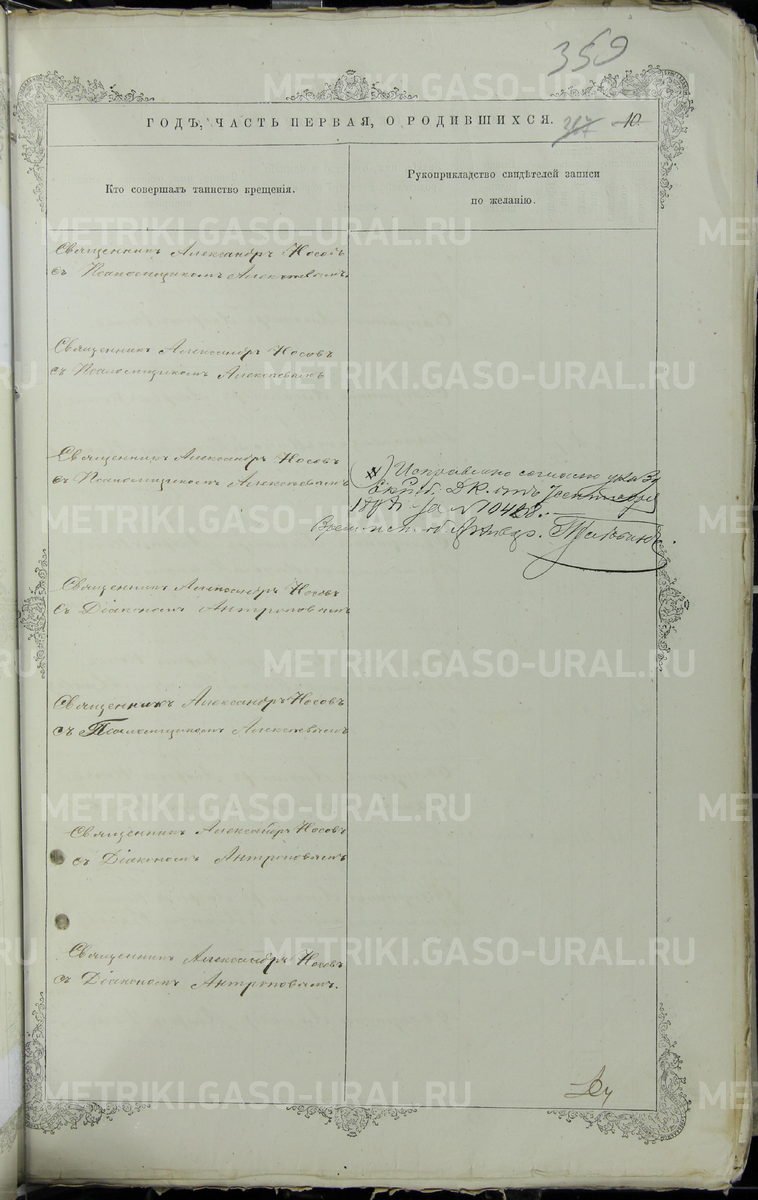 359
ГОДЪ, ЧАСТЬ ПЕРВАЯ, О РОДИВШИХСЯ. 47 10.
Кто совершалъ таинство крещенія.
Рукоприкладство свидѣтелей записи
по желанію.
Священникъ Александръ Носовъ
съ Псаломщикомъ Алексѣевымъ.
Священникъ Александръ Носовъ
съ Псаломщикомъ Алексѣевымъ
Священникъ Александръ Носовъ
съ Псаломщикомъ Алексѣевымъ
Исправлено согласно указа
Екат. Д. К. отъ
за № 10428.
Священникъ Александръ Носовъ
съ Діакономъ Антроповымъ
Священникъ Александръ Носовъ
съ Псаломщикомъ Алексѣевымъ
Священникъ Александръ Носовъ
съ Діакономъ Антроповымъ
Священникъ Александръ Носовъ
съ Діакономъ Антроповымъ.
METRIKI.GASO-URAL.RU